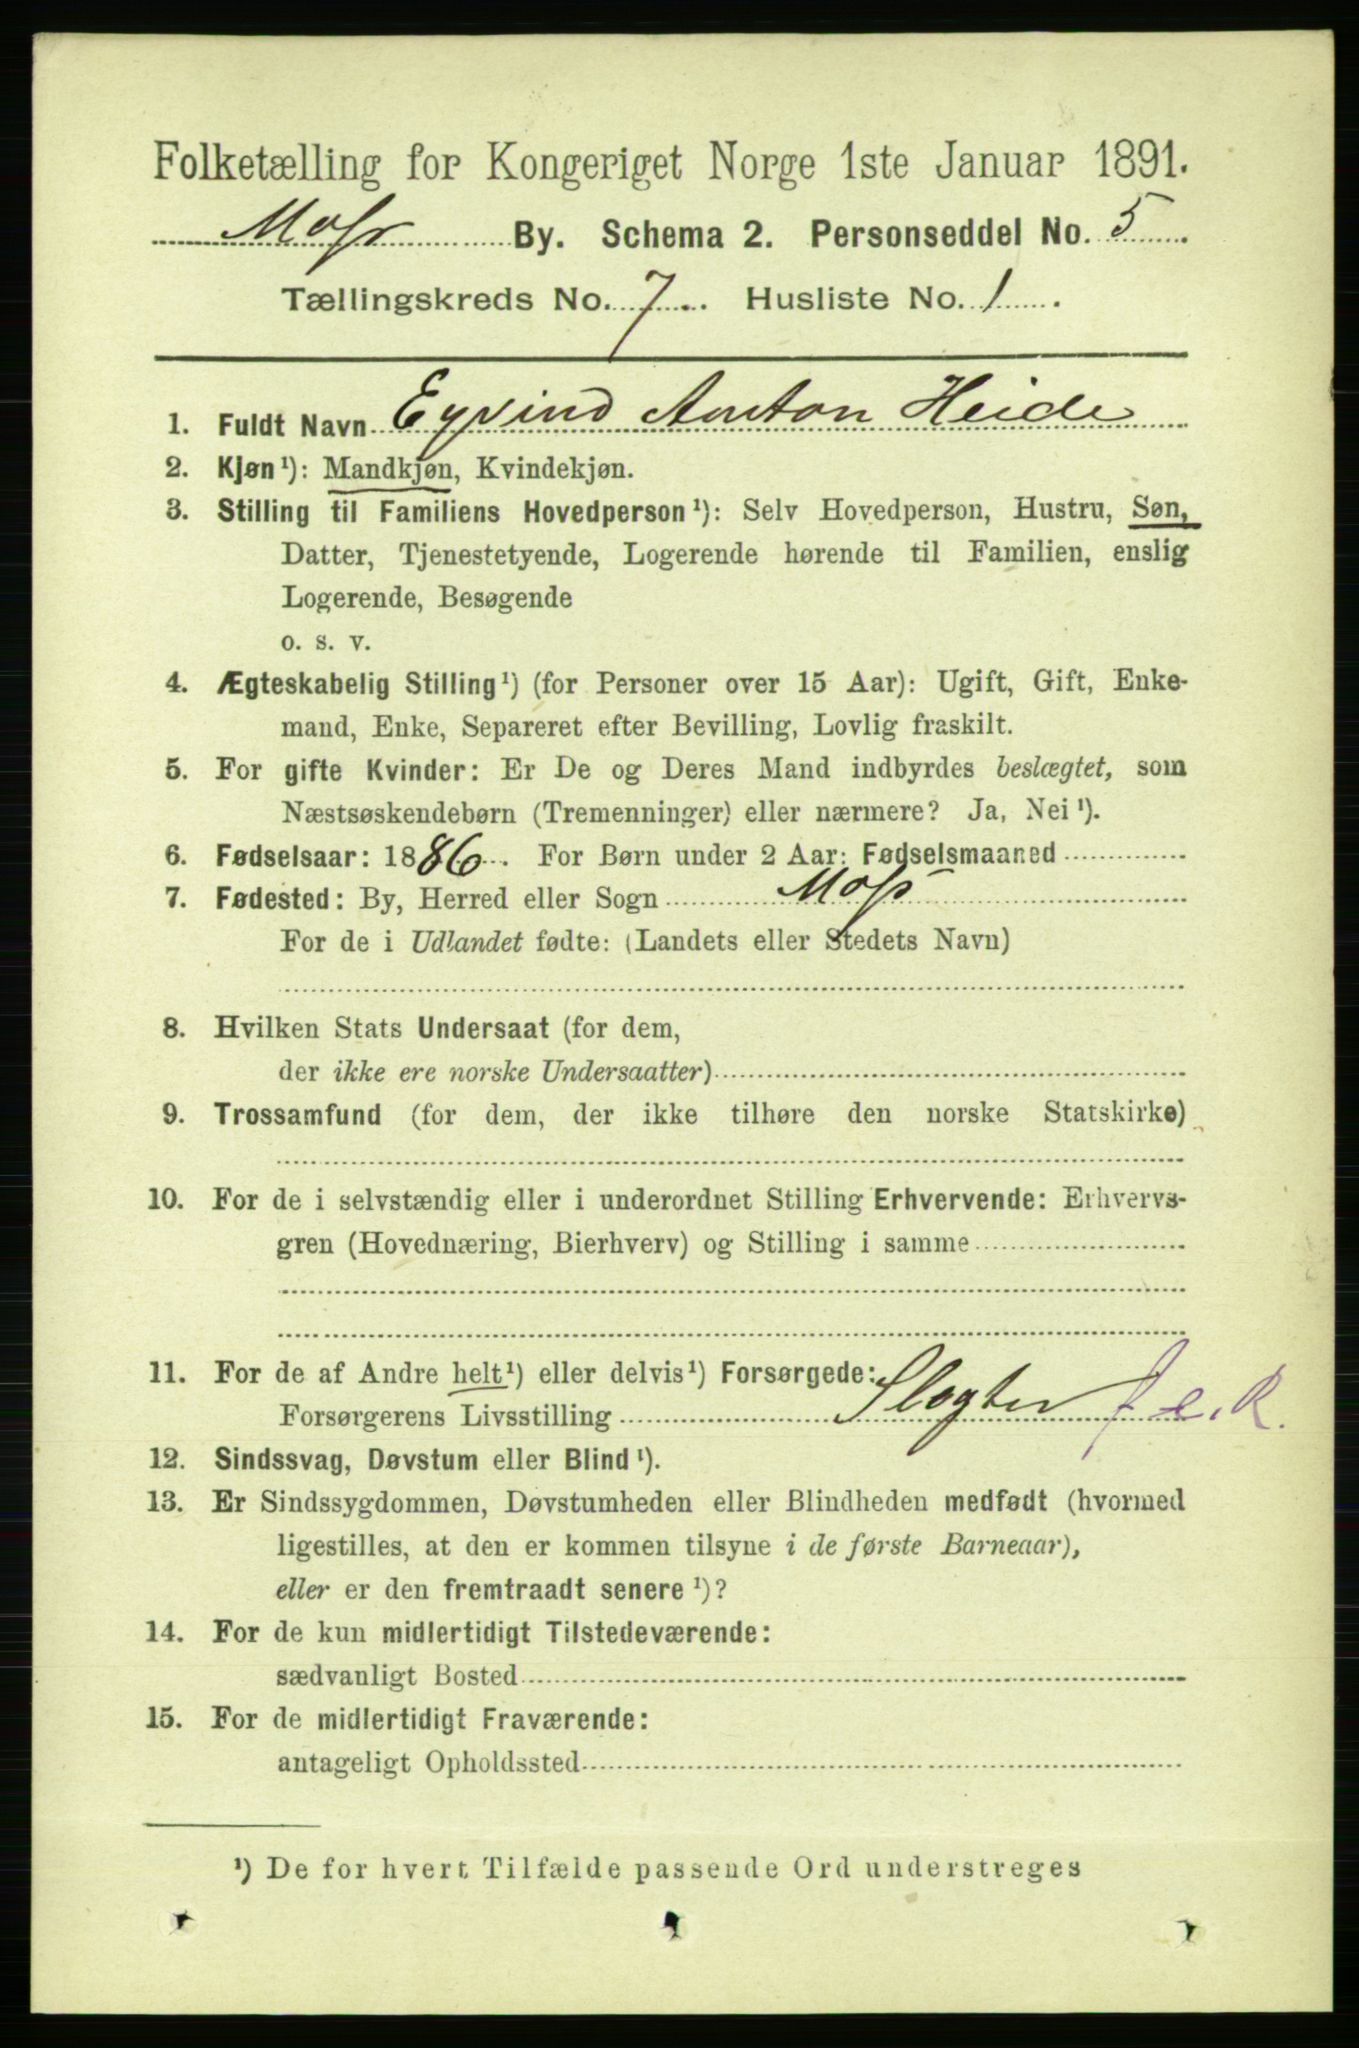 Folketælling for Kongeriget Norge 1ste Januar 1891.
Moss By. Schema 2. Personseddel No. 5
Tællingskreds No. 7. Husliste No. 1.
1. Fuldt Navn Eyvind Anton Heide
2. Kjøn¹): Mandkjøn, Kvindekjøn.
3. Stilling til Familiens Hovedperson¹): Selv Hovedperson, Hustru, Søn,
Datter, Tjenestetyende, Logerende hørende til Familien, enslig
Logerende, Besøgende
o. s. v.
4. Ægteskabelig Stilling¹) (for Personer over 15 Aar): Ugift, Gift, Enke-
mand, Enke, Separeret efter Bevilling, Lovlig fraskilt.
5. For gifte Kvinder: Er De og Deres Mand indbyrdes beslægtet, som
Næstsøskendebørn (Tremenninger) eller nærmere? Ja, Nei¹).
6. Fødselsaar: 1886. For Børn under 2 Aar: Fødselsmaaned
7. Fødested: By, Herred eller Sogn Moss
For de i Udlandet fødte: (Landets eller Stedets Navn)
8. Hvilken Stats Undersaat (for dem,
der ikke ere norske Undersaatter)
9. Trossamfund (for dem, der ikke tilhøre den norske Statskirke)
10. For de i selvstændig eller i underordnet Stilling Erhvervende: Erhvervs-
gren (Hovednæring, Bierhverv) og Stilling i samme
11. For de af Andre helt¹) eller delvis¹) Forsørgede:
Forsørgerens Livsstilling Slagter
12. Sindssvag, Døvstum eller Blind¹).
13. Er Sindssygdommen, Døvstumheden eller Blindheden medfødt (hvormed
ligestilles, at den er kommen tilsyne i de første Barneaar),
eller er den fremtraadt senere¹)?
14. For de kun midlertidigt Tilstedeværende:
sædvanligt Bosted
15. For de midlertidigt Fraværende:
antageligt Opholdssted
¹) De for hvert Tilfælde passende Ord understreges